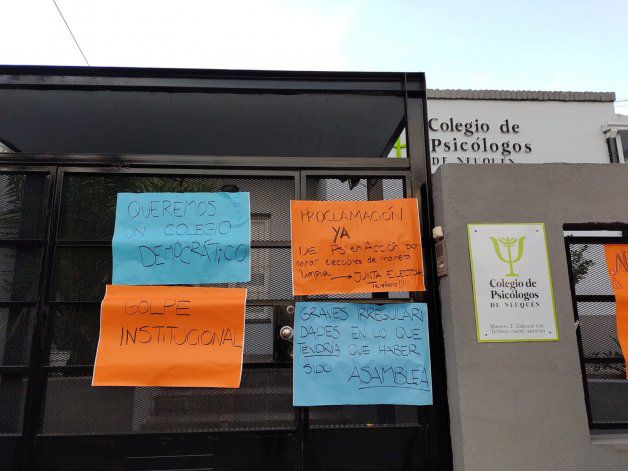 Colegio de
Psicólogos
DE NEUQUÉN
QUEREMOS
UN COLEGIO
DEMOCRÁTICO
PROCLAMACIÓN
YA
DE PSI en ACCIÓN por
ganar elecciones de manera
limpia → JUNTA ELECTORAL
Teléfono!!!
GOLPE
INSTITUCIONAL
GRAVES IRREGULARI
DADES EN LO QUE
TENDRIA QUE HABER
SIDO ASAMBLEA
Colegio de
Psicólogos
DE NEUQUÉN